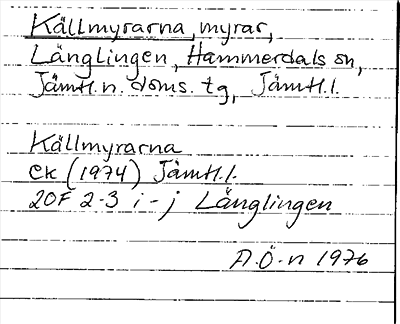 Källmyrarna, myrar,
Länglingen, Hammerdals sn,
Jämtl. n. doms. tg, Jämtl. l.
Källmyrarna
ek (1974) Jämtl. l.
20F 2-3 i-j Länglingen
A.Ö-n 1976